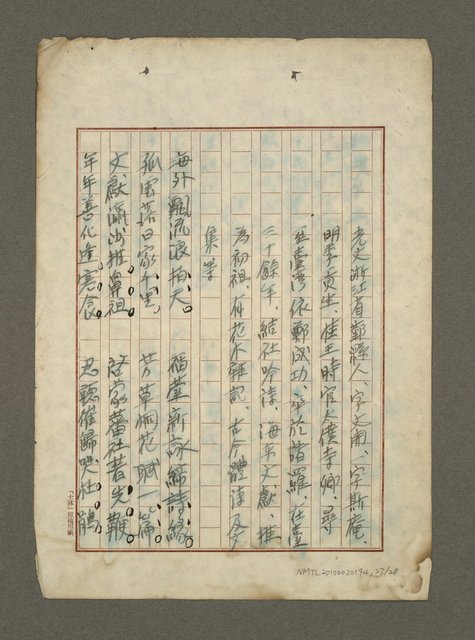 光文浙江省鄞縣人、字文甫、一字斯庵、
明季貢生、桂王時官太僕寺卿、尋
至臺灣依鄭成功、卒於諸羅、在臺
三十餘年、結社吟詩、海東文獻、推
為初祖、有花木雜記、古今體詩及文
集等
海外飄流浪拍天。 福臺新詠締詩緣。
孤雲落日家千里。 芳草桐花賦一篇。
文獻瀛洲推鼻祖。 故家蕃社著先鞭。
年年善化逢寒食。 忍聽催歸哭杜鵑。
NMTL20100020194 27/28